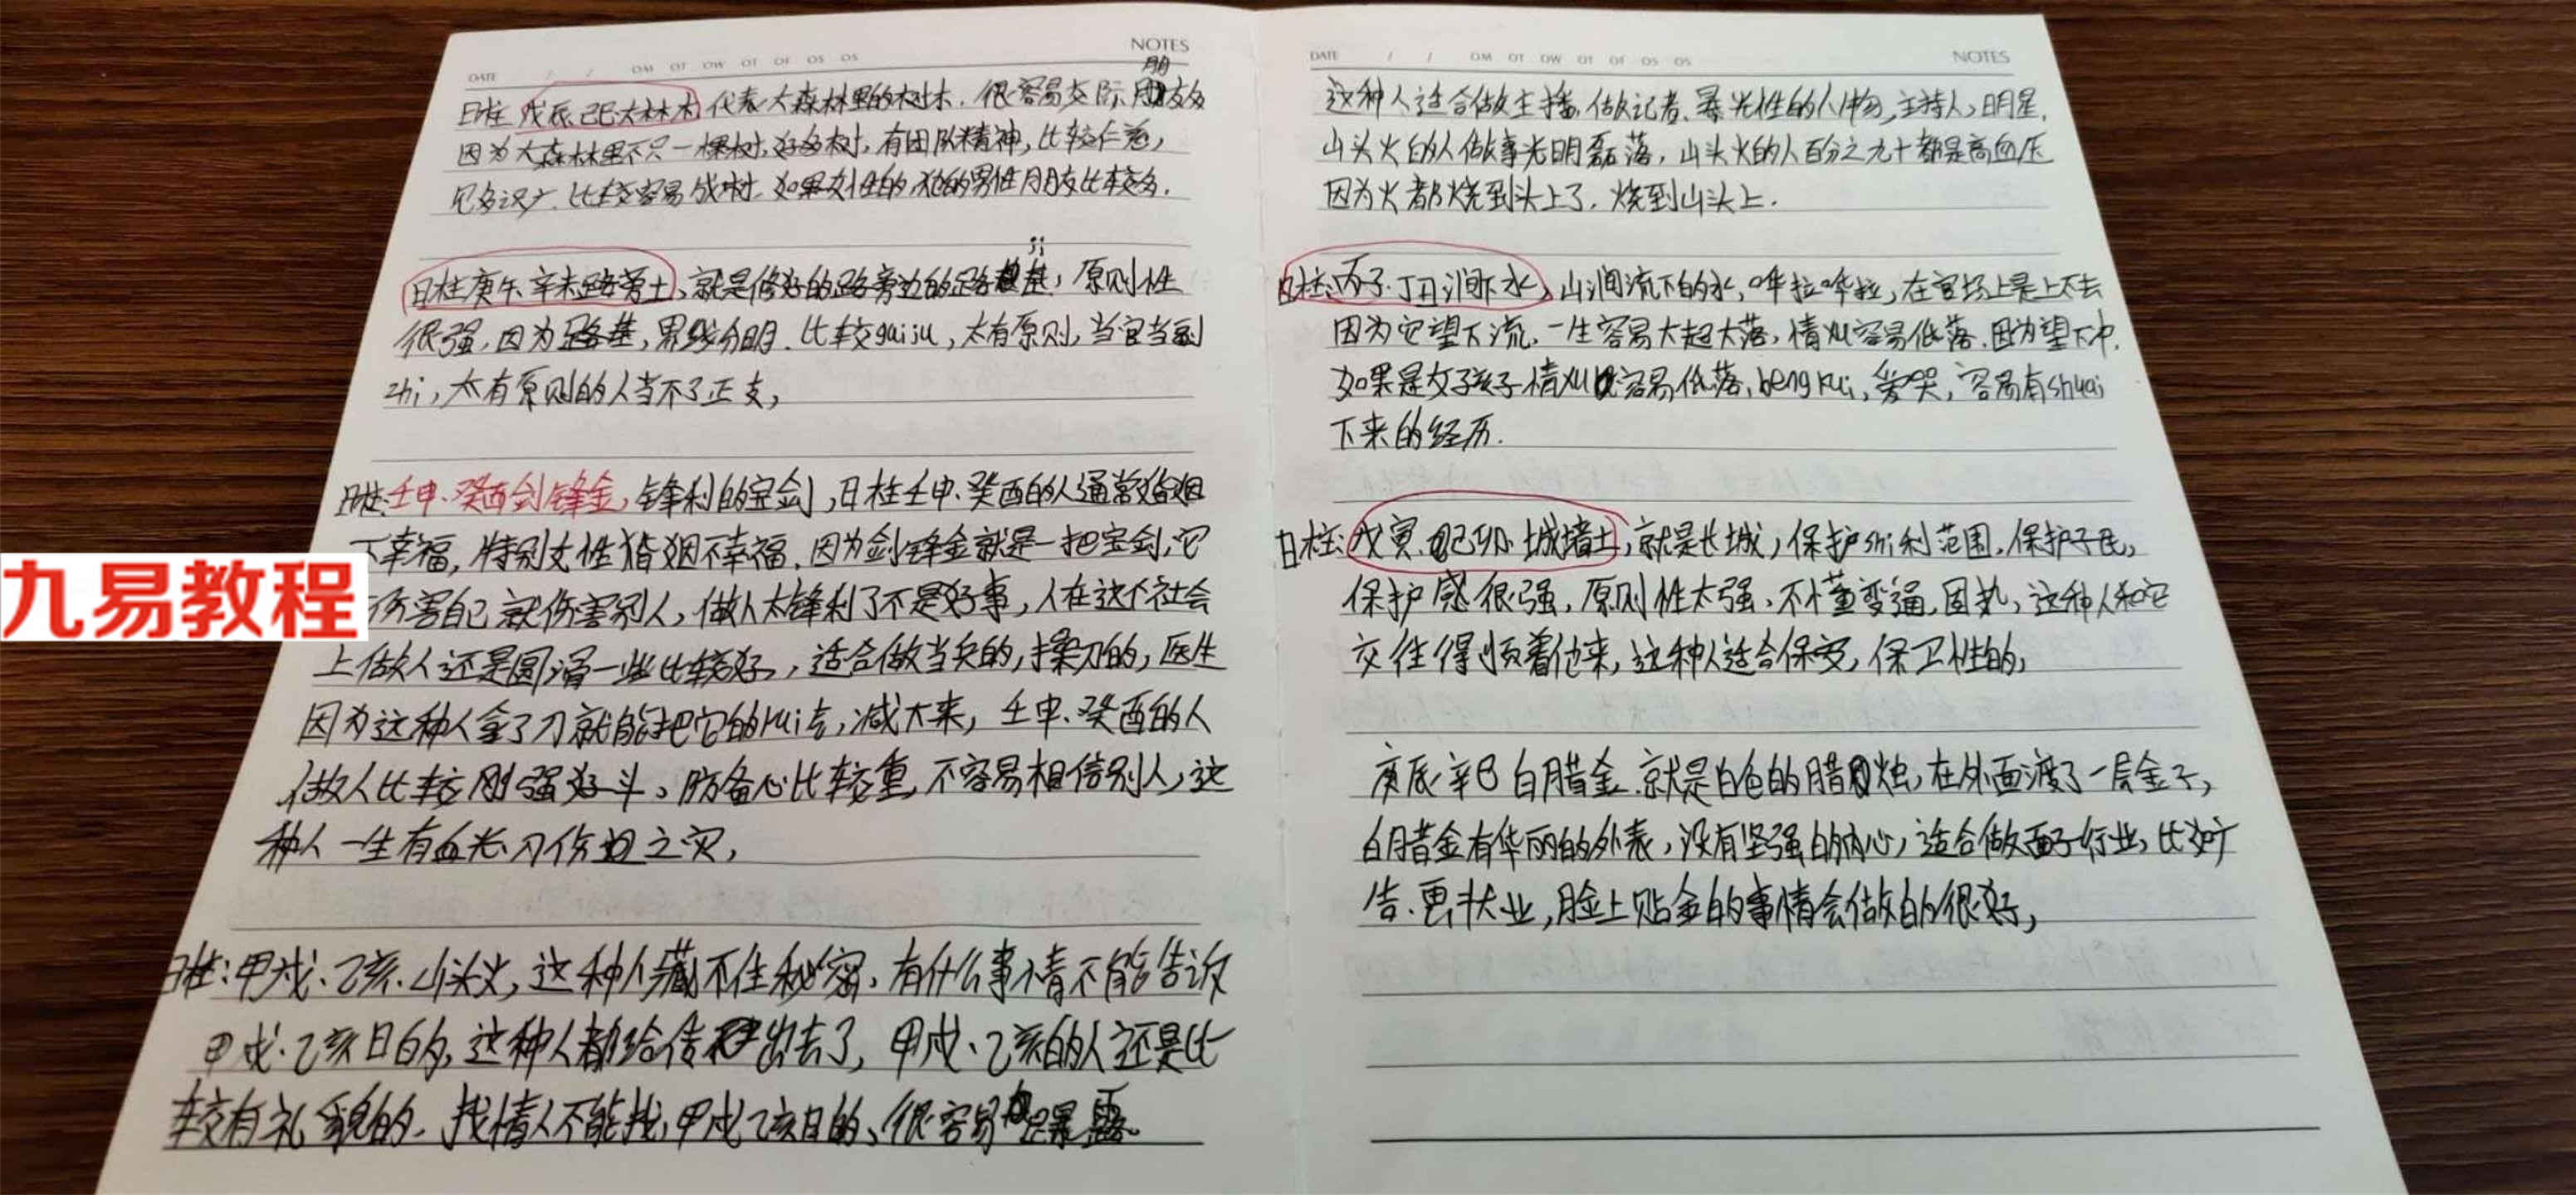 DATE / / OM OT OW OT OF OS OS NOTES
朋
日柱 戊辰己巳大林木 代表大森林里的树木.很容易交际 朋友多
因为大森林里不只一棵树,好多树,有团队精神,比较仁慈,
见多识广.比较容易成树.如果女性的,他的男性朋友比较多.
日柱庚午.辛未路旁土、就是修好的路旁边的路基,原则性
很强,因为路基,界线分明.比较guiju,太有原则,当官当副
zhi,太有原则的人当不了正支,
日柱:壬申.癸酉剑锋金,锋利的宝剑,日柱壬申.癸酉的人通常婚姻
不幸福,特别女性婚姻不幸福.因为剑锋金就是一把宝剑,它
伤害自己就伤害别人,做人太锋利了不是好事,人在这个社会
上做人还是圆滑一些比较好,适合做当兵的,操刀的,医生
因为这种人拿了刀就能把它的rui气,减大来,壬申.癸酉的人
做人比较刚强好斗、防备心比较重,不容易相信别人,这
种人一生有血光刀伤之灾,
日柱:甲戌、乙亥.山头火,这种人藏不住秘密,有什么事情不能告诉
甲戌.乙亥日的,这种人都给传出去了,甲戌、乙亥的人还是比
较有礼貌的.找情人不能找,甲戌乙亥日的、很容易暴露.
九易教程
DATE / / OM OT OW OT OF OS OS NOTES
这种人适合做主播,做记者、暴光性的人物,主持人,明星,
山头火的人做事光明磊落,山头火的人百分之九十都是高血压
因为火都烧到头上了,烧到山头上.
日柱:丙子.丁丑涧下水,山涧流下的水,哗拉哗拉,在官场上是上不去
因为它望下流,一生容易大起大落,情xu容易低落.因为望下冲.
如果是女孩子情xu容易低落,beng kui,爱哭,容易有shuai
下来的经历.
日柱:戊寅.己卯.城墙土,就是长城,保护shi利范围,保护子民,
保护感很强,原则性太强,不懂变通,固执,这种人和它
交往得顺着他来,这种人适合保安,保卫性的,
庚辰辛巳白腊金.就是白色的腊烛,在外面渡了一层金子,
白腊金有华丽的外表,没有坚强的内心,适合做面子行业,比如广
告.画状业,脸上贴金的事情会做的很好,